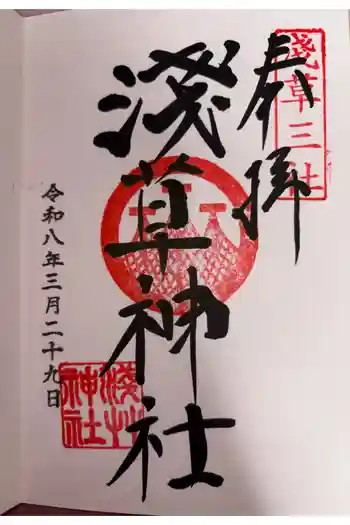 淺草三社
奉拝
淺草神社
令和八年三月二十九日
淺艸神社